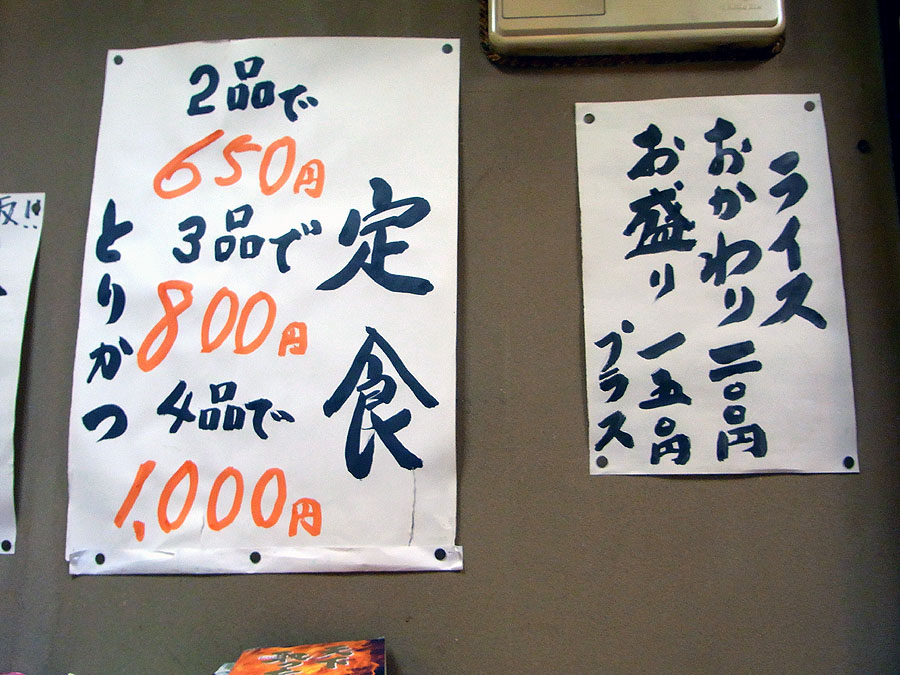 定食
2品で
650円
3品で
800円
4品で
1,000円
とりかつ
ライス
おかわり 二〇〇円
お盛り 一五〇円
プラス
反!!